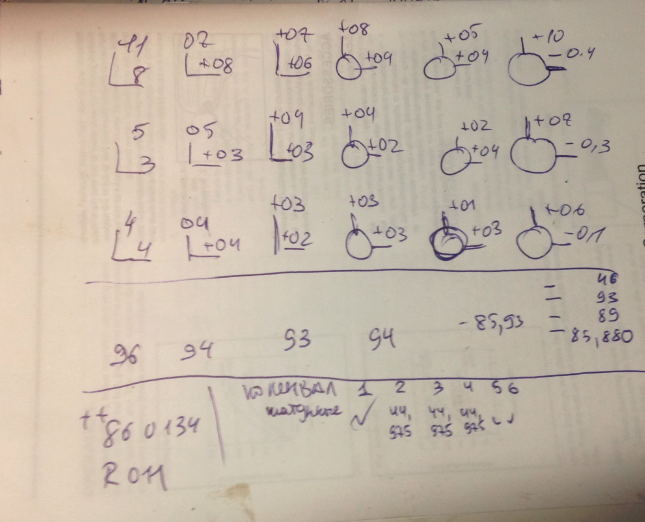 11 02 +07 +08 +05 +10
8 +08 +06 +04 +04 -0.4
5 05 +04 +04 +02 +02
3 +03 +03 +02 +04 -0,3
4 04 +03 +03 +01 +0.6
4 +04 +02 +03 +03 -0,1
- 46
- 93
- 89
96 94 93 94 -85,93 -85,880
коленвал 1 2 3 4 5 6
шатунные ✓ 44,975 44,975 44,975 ✓ ✓
++860134
R011